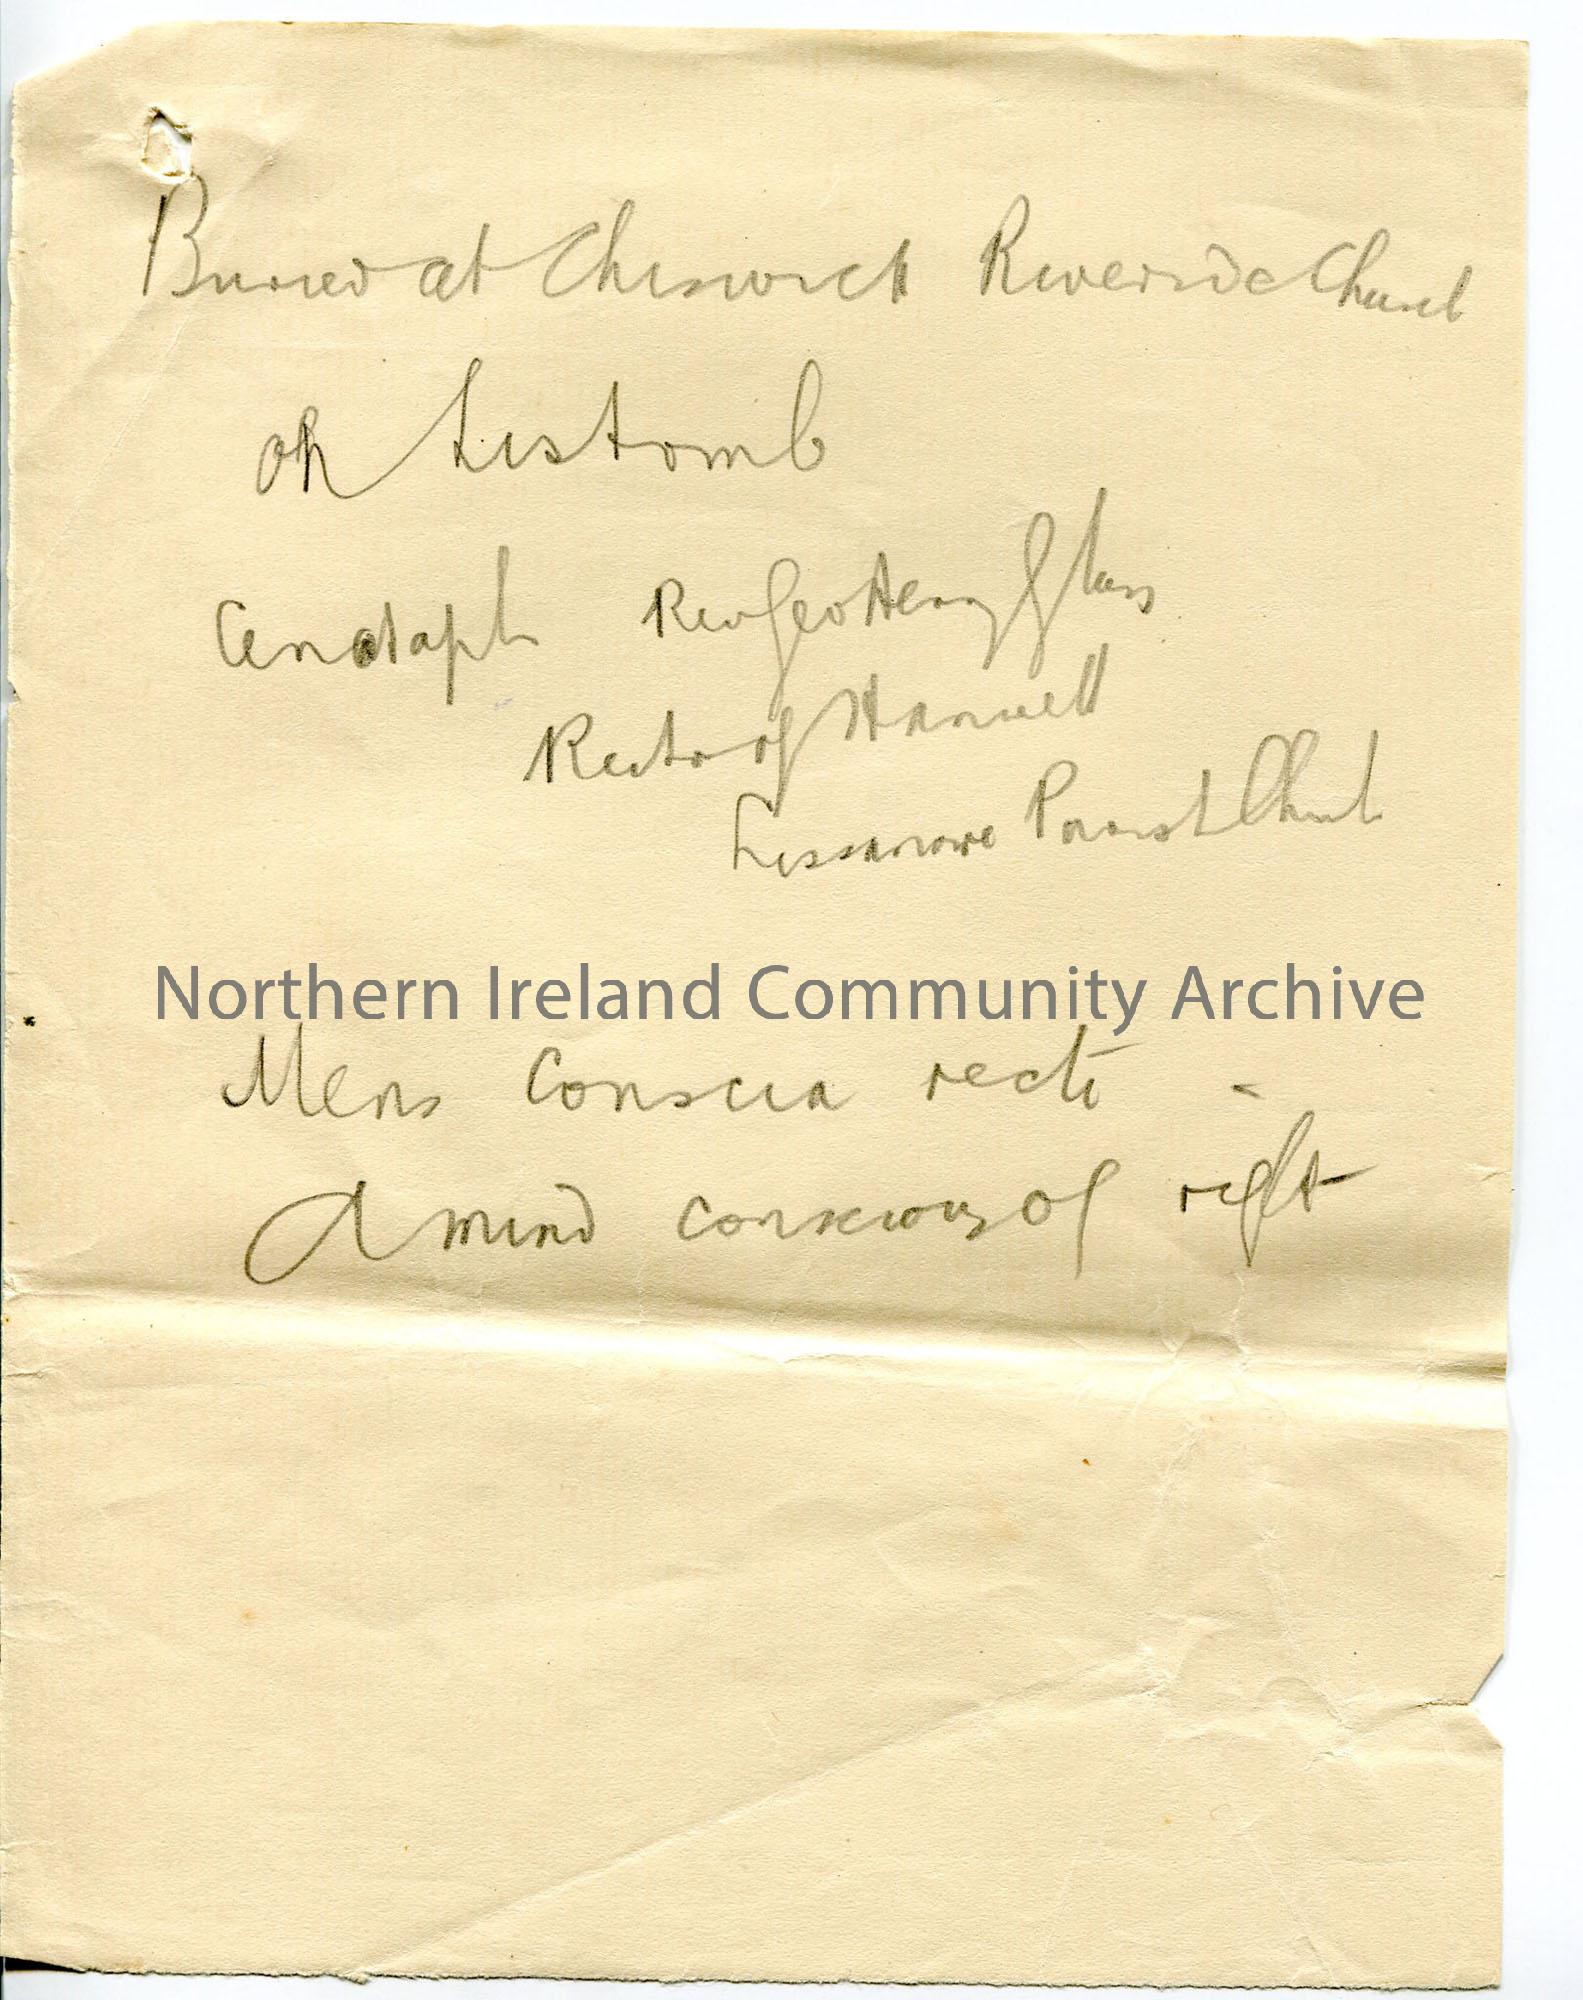 Buried at Chiswick Riverside Church
on his tomb
Cenotaph Rev Geo Henry Glass
Rector of Hanwell
Parish Church
Northern Ireland Community Archive
Mens Conscia recti -
A mind conscious of right